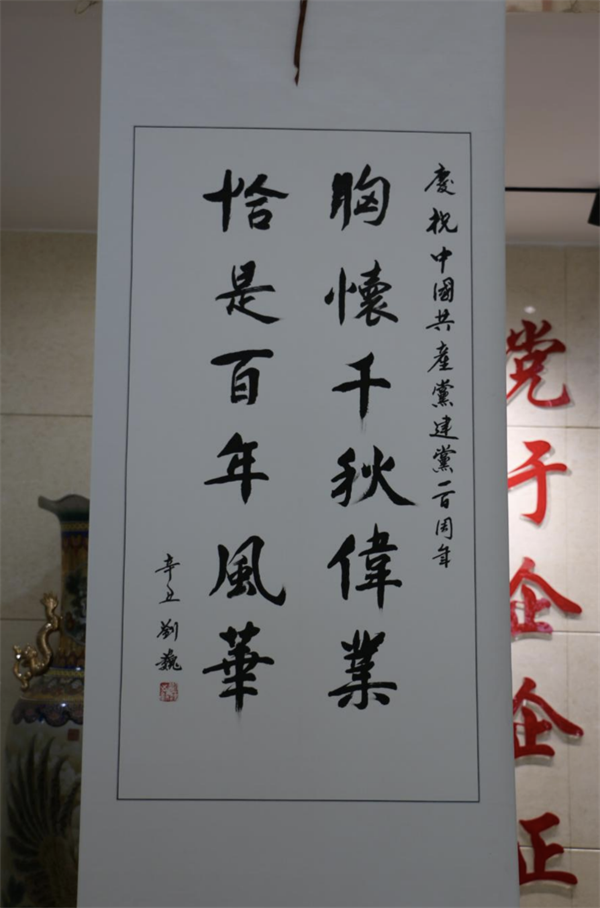 慶祝中國共產黨建黨一百周年
胸懷千秋偉業
恰是百年風華
辛丑 劉巍
党于企企正